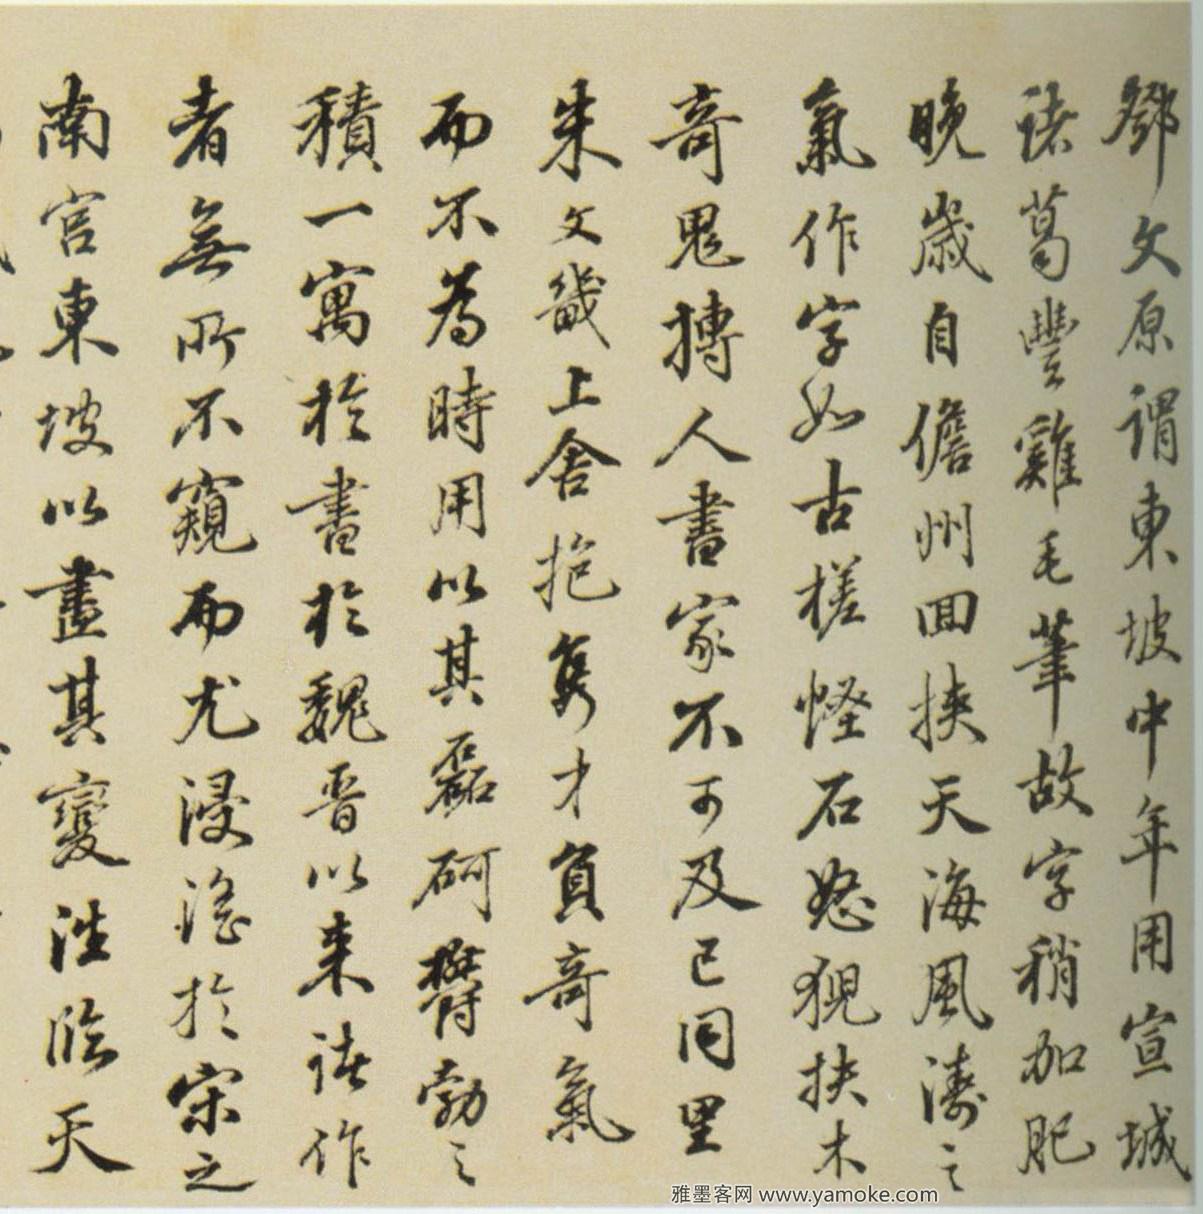 鄧文原謂東坡中年用宣城
諸葛豐雞毛筆故字稍加肥
晚歲自儋州回挾天海風濤之
氣作字如古槎怪石怒猊扶木
奇鬼搏人書家不可及已同里
朱文畿上舍抱雋才負奇氣
而不為時用以其磊砢欝勃之
積一寓於書於魏晉以来諸作
者無所不窺而尤浸滛於宋之
南宮東坡以盡其變注臨天
雅墨客网 www.yamoke.com